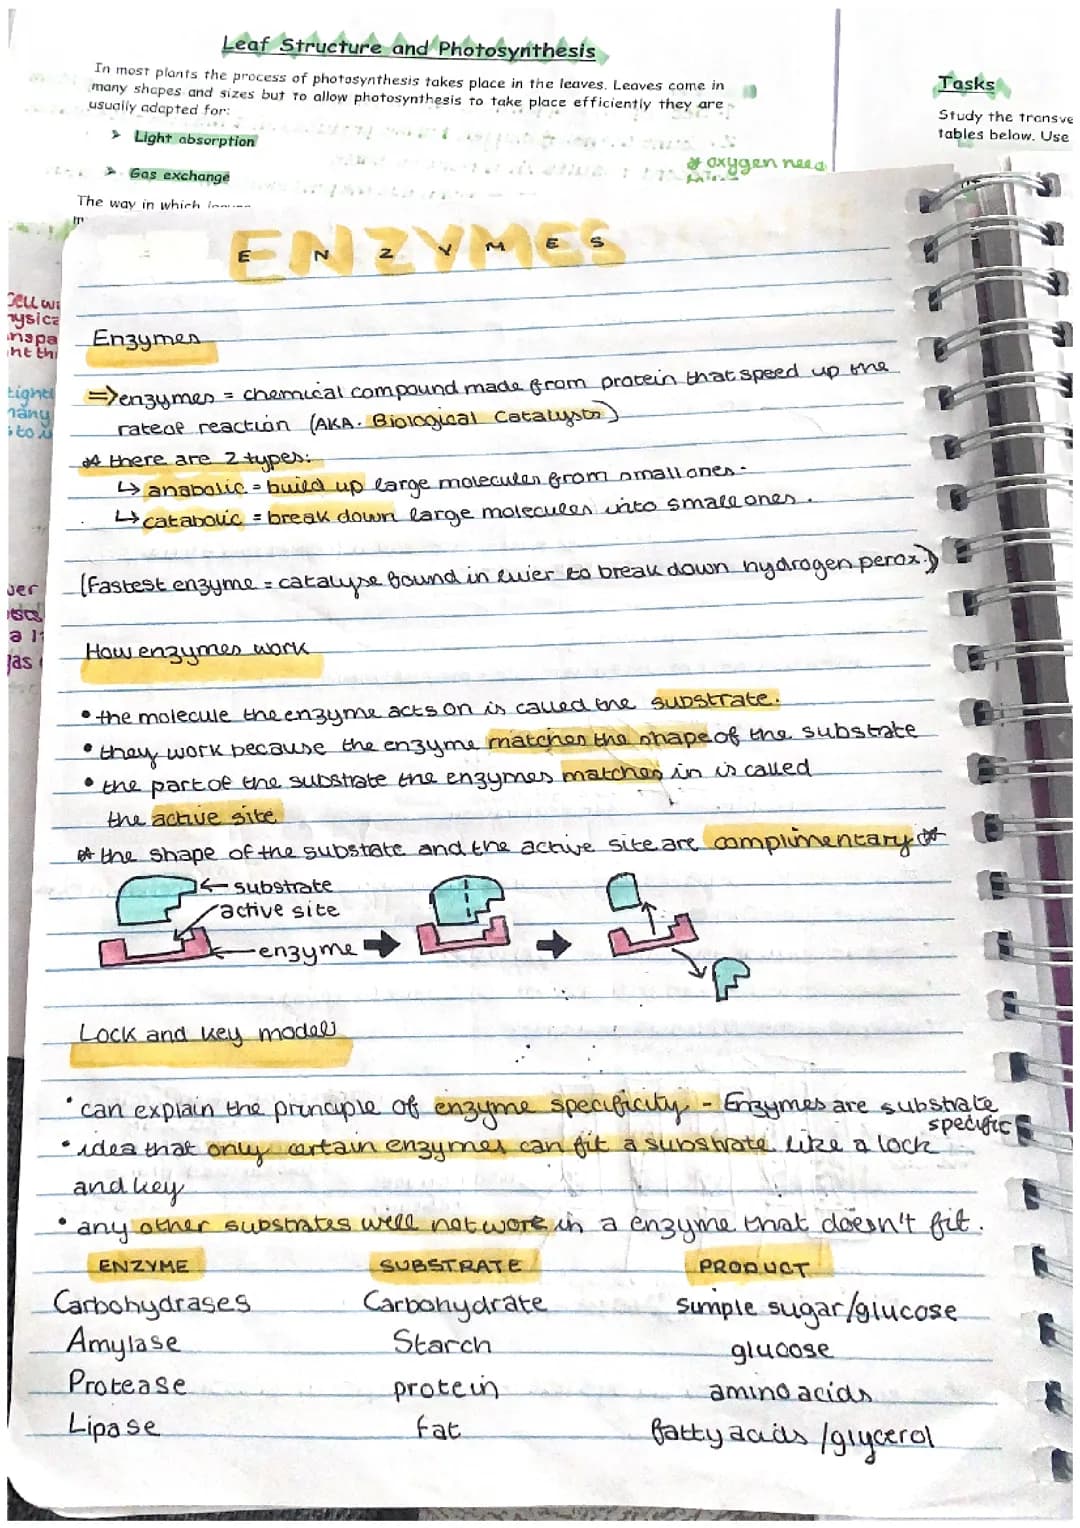 Leaf Structure and Photosynthesis
In most plants the process of photosynthesis takes place in the leaves. Leaves come in
many shapes and sizes but to allow photosynthesis to take place efficiently they are
usually adapted for:
➤ Light absorption
➤ Gas exchange
The way in which
Tasks
Study the transve
tables below. Use
* oxygen need
ENZYMES
E N Z Y M E S
Enzymes
⇒ enzymes = chemical compound made from protein that speed up the
rate of reaction (AKA. Biological Catalysts)
* there are 2 types:
↳ anabolic = build up large molecules from small ones.
↳ catabolic = break down large molecules into small ones.
(Fastest enzyme = catalyse found in liver to break down hydrogen perox.)
How enzymes work
• the molecule the enzyme acts on is called the substrate.
• they work because the enzyme matches the shape of the substrate
• the part of the substrate the enzymes matches in is called
the active site
* the shape of the substrate and the active site are complimentary *
substrate
active site
enzyme
Lock and key model
• can explain the principle of enzyme specificity - Enzymes are substrate
specific
• idea that only certain enzymes can fit a substrate like a lock
and key
• any other substrates will not work in a enzyme that doesn't fit.
ENZYME SUBSTRATE PRODUCT
Carbohydrases Carbohydrate simple sugar/glucose
Amylase Starch glucose
Protease protein amino acids
Lipase fat fatty acids/glycerol